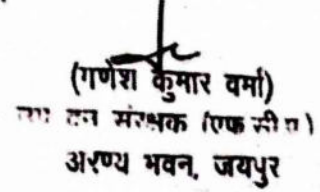 (गणेश कुमार वर्मा)
उप वन संरक्षक (एफ सी ए)
अरण्य भवन, जयपुर